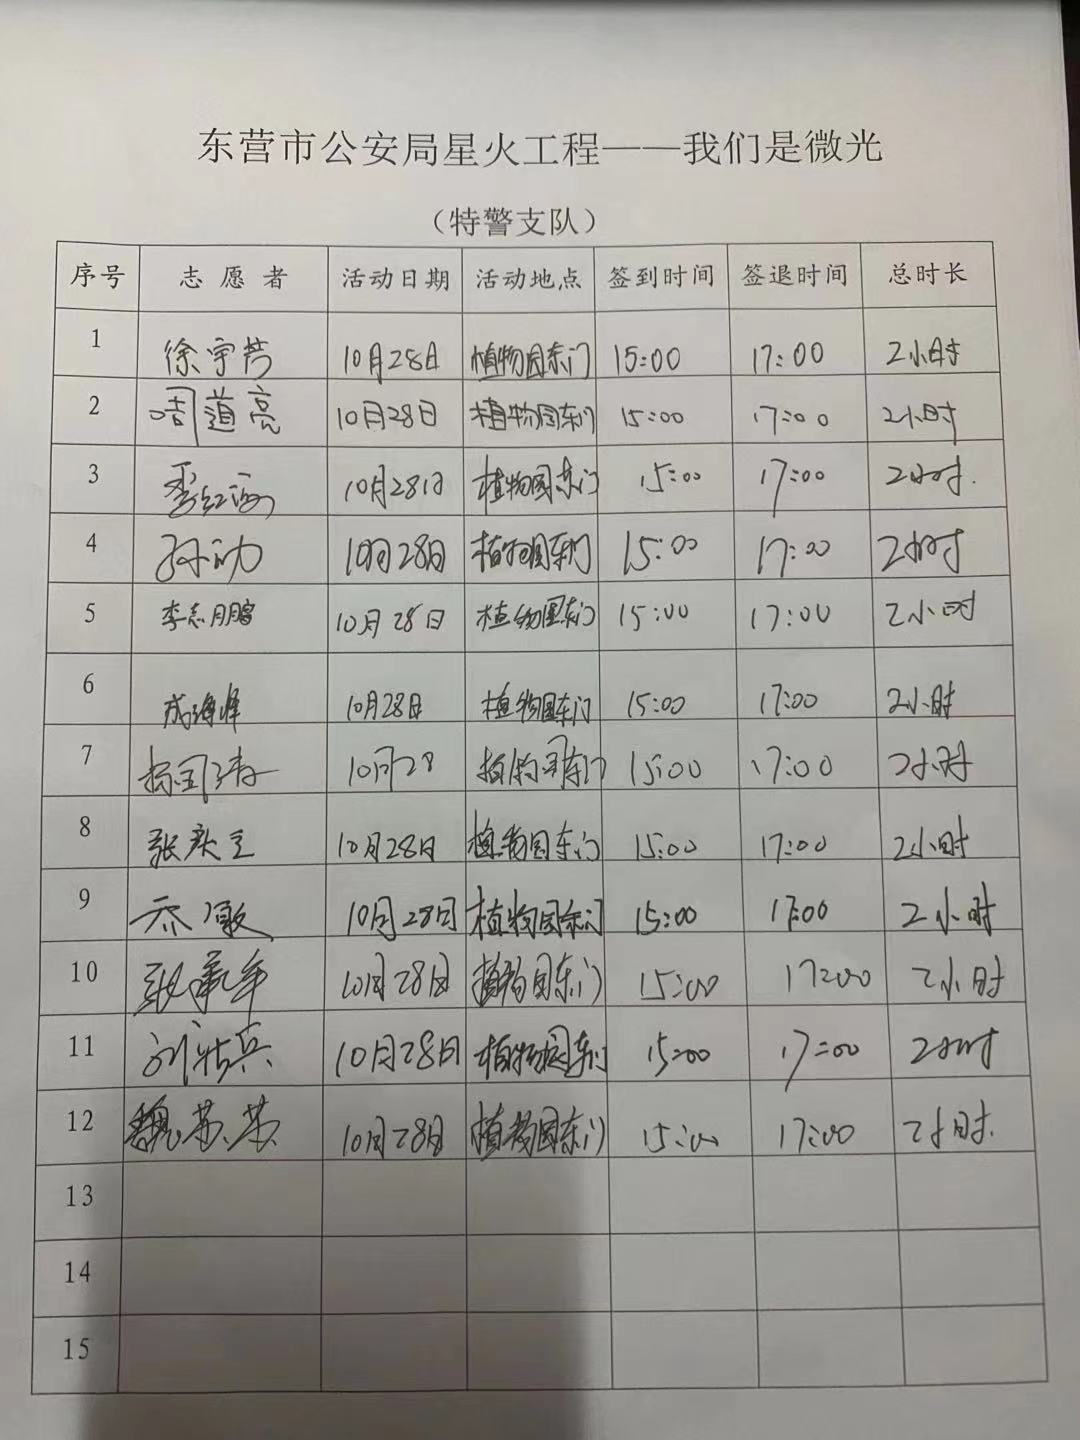 东营市公安局星火工程——我们是微光
（特警支队）
序号 志愿者 活动日期 活动地点 签到时间 签退时间 总时长
1 徐宇芳 10月28日 植物园东门 15:00 17:00 2小时
2 周道亮 10月28日 植物园东门 15:00 17:00 2小时
3 10月28日 植物园东门 15:00 17:00 2小时
4 孙功 10月28日 植物园东门 15:00 17:00 2小时
5 李志鹏 10月28日 植物园东门 15:00 17:00 2小时
6 成海峰 10月28日 植物园东门 15:00 17:00 2小时
7 10月28 植物园东门 15:00 17:00 2小时
8 10月28日 植物园东门 15:00 17:00 2小时
9 10月28日 植物园东门 15:00 17:00 2小时
10 10月28日 植物园东门 15:00 17:00 2小时
11 10月28日 植物园东门 15:00 17:00 2小时
12 魏苏苏 10月28日 植物园东门 15:00 17:00 2小时
13
14
15